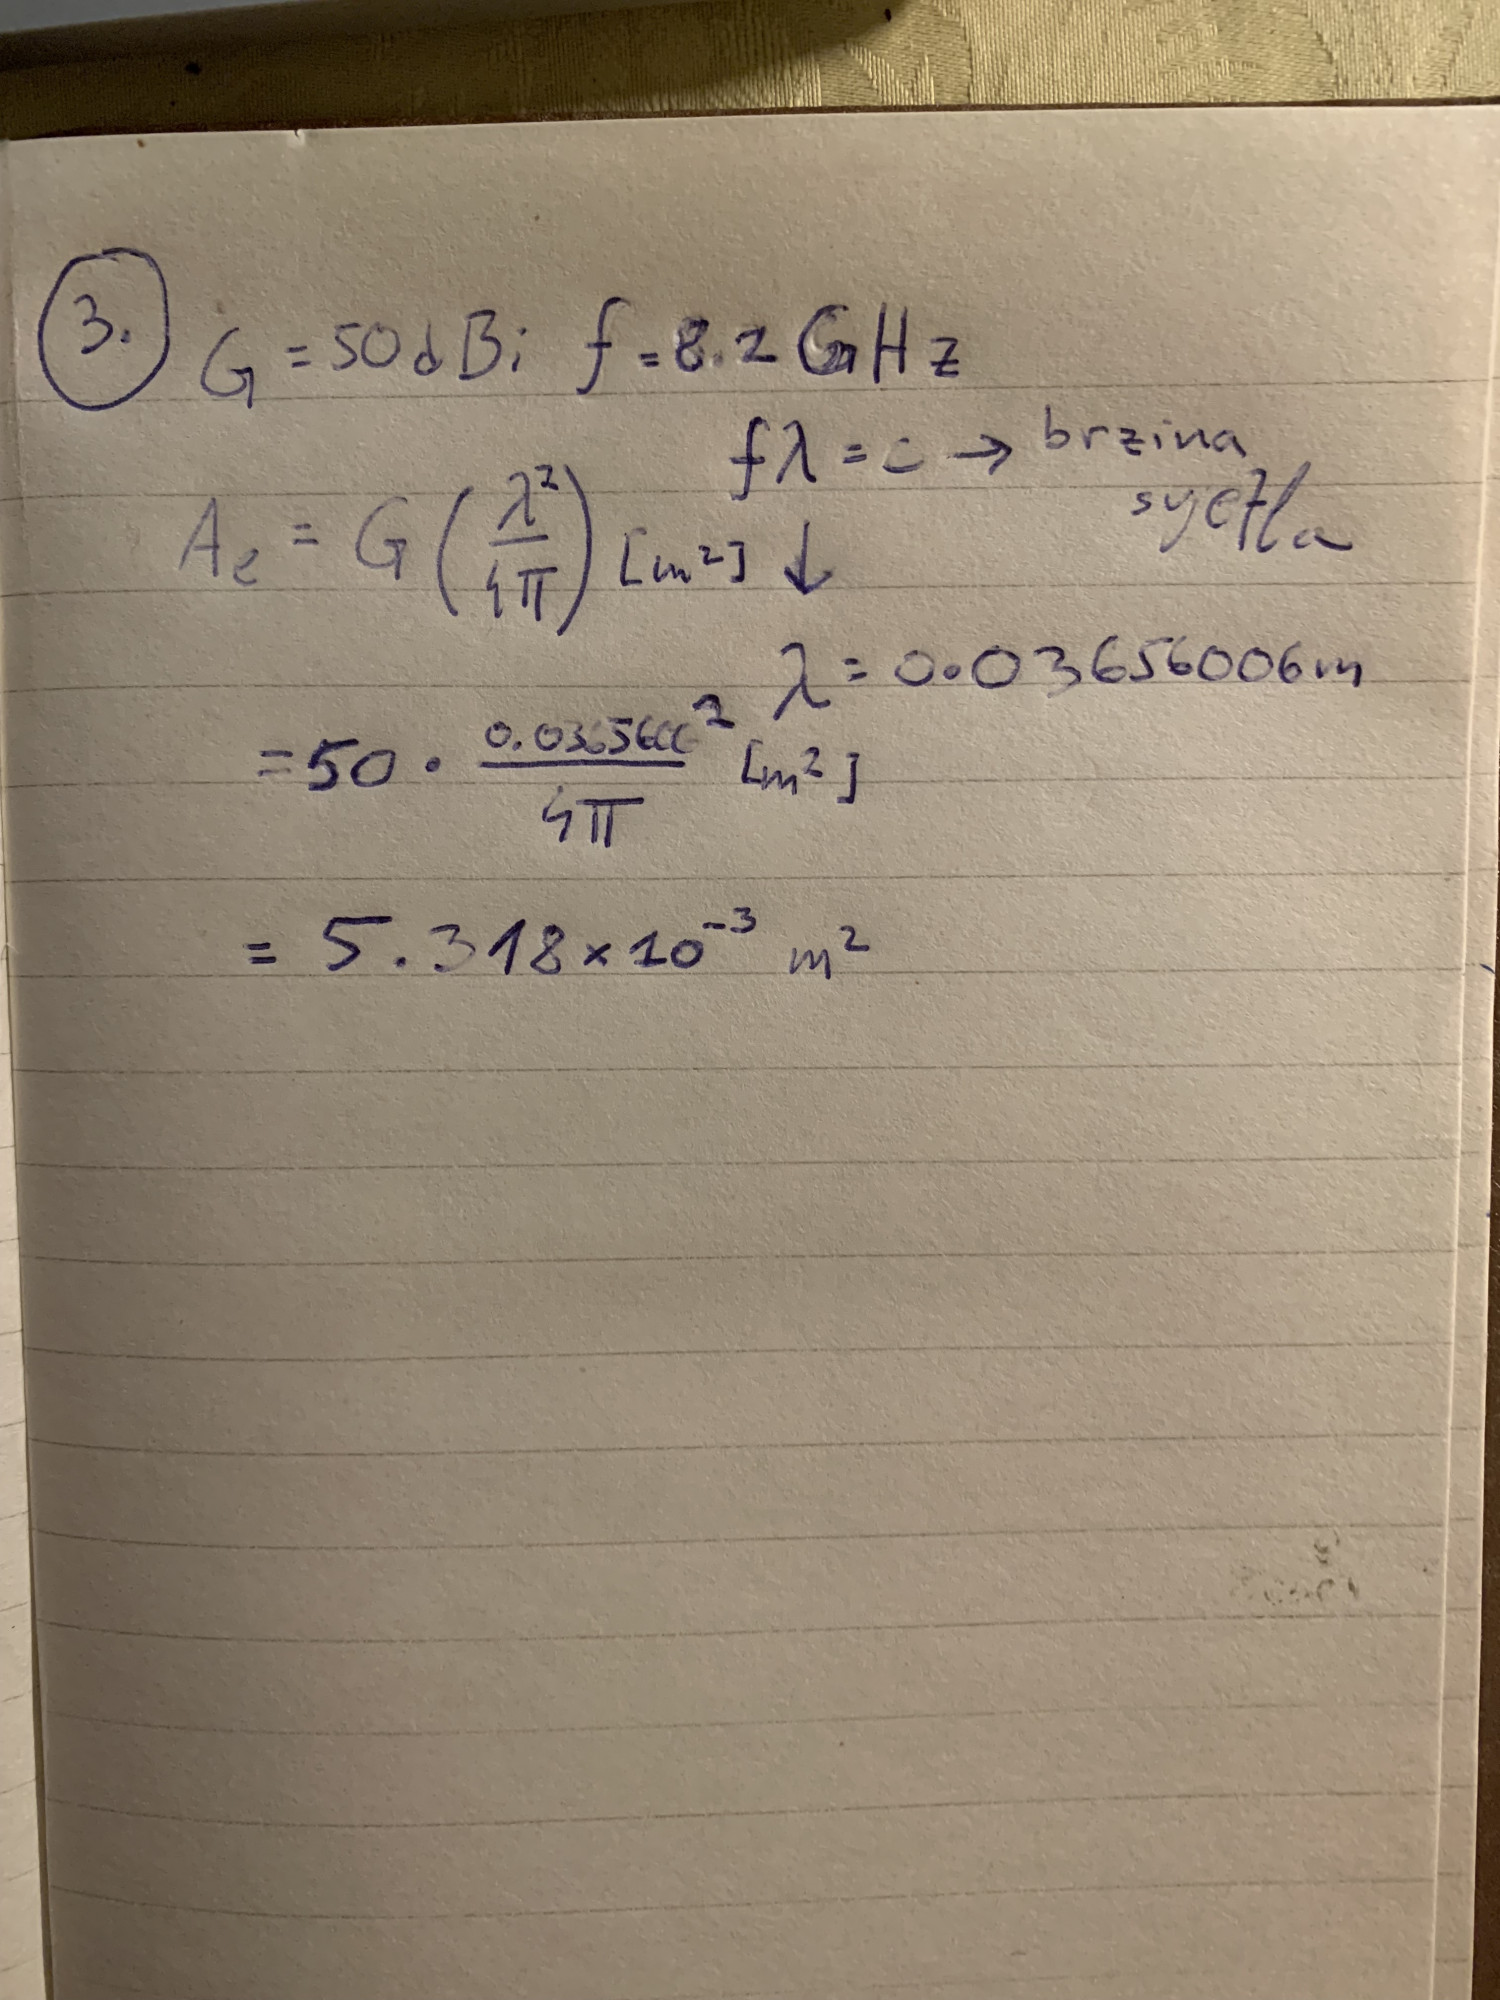 3.
G = 50dBi f = 8.2 GHz
fλ = c → brzina
svjetla
Ae = G (λ²/4π) [m²] ↓
λ = 0.03656006m
= 50 · 0.036560²/4π [m²]
= 5.318 × 10⁻³ m²